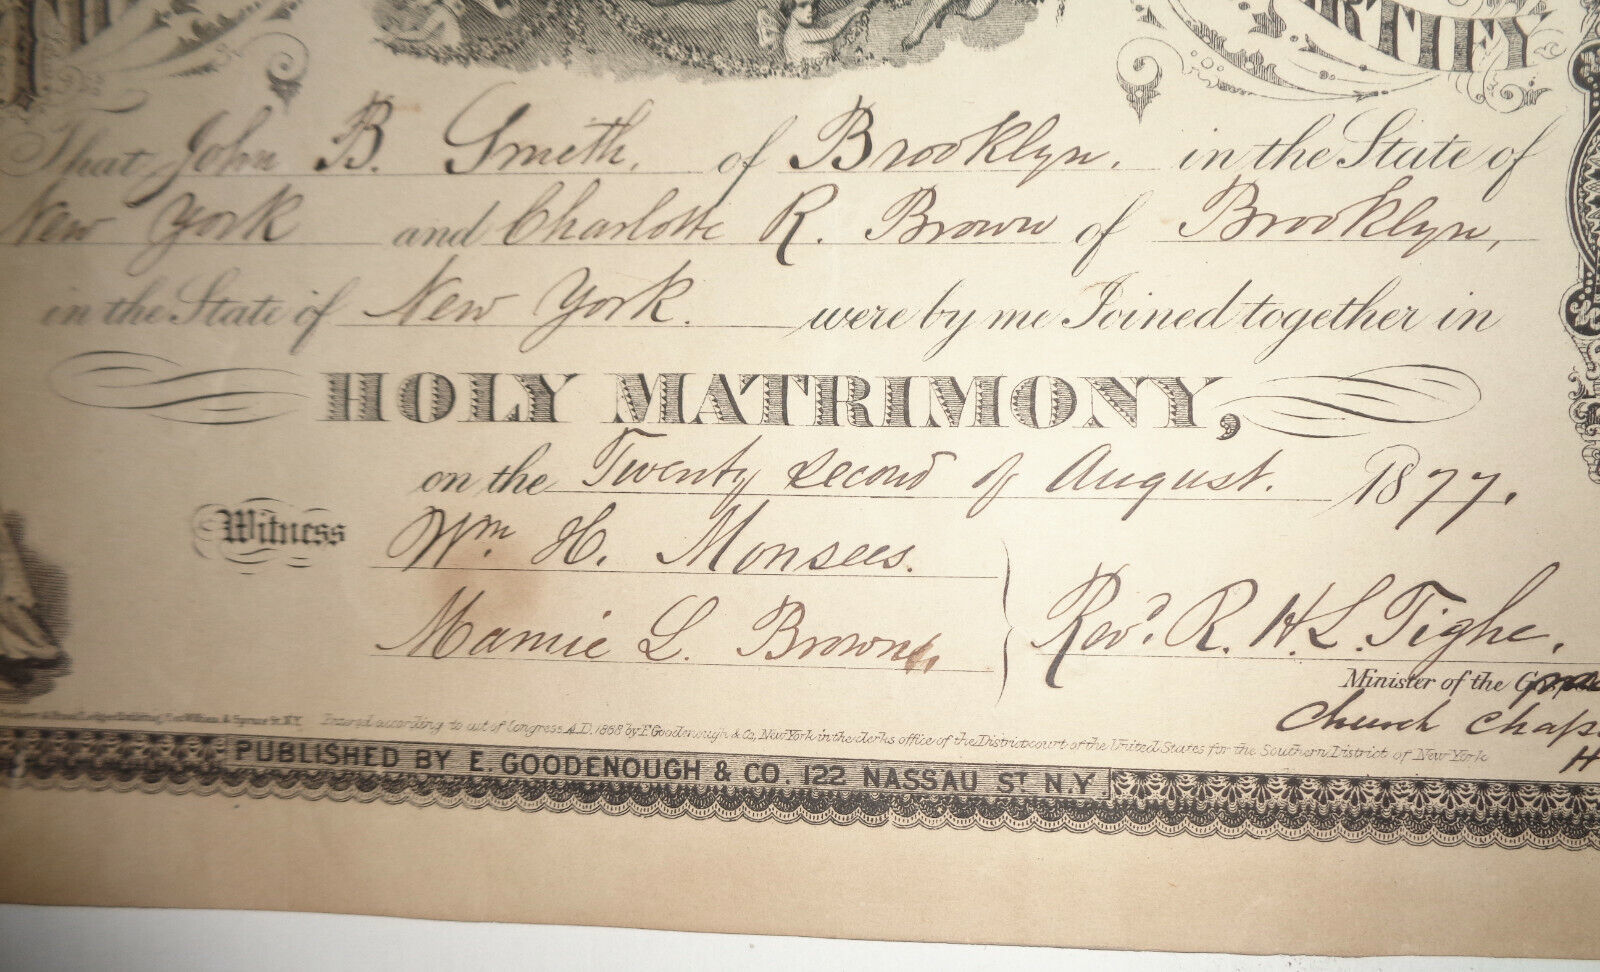 CERTIFY
That John B. Smith, of Brooklyn, in the State of
New York and Charlotte R. Brown of Brooklyn,
in the State of New York. were by me Joined together in
HOLY MATRIMONY,
on the Twenty second of August. 1877.
Witness
Wm H. Monsees.
Mamie L. Brown
Revd. R. H. L. Tighe,
Minister of the
Church
Entered according to act of Congress A.D. 1868 by E. Goodenough & Co, New York in the clerks office of the District court of the United States for the Southern District of New York
PUBLISHED BY E. GOODENOUGH & CO. 122 NASSAU ST. N.Y